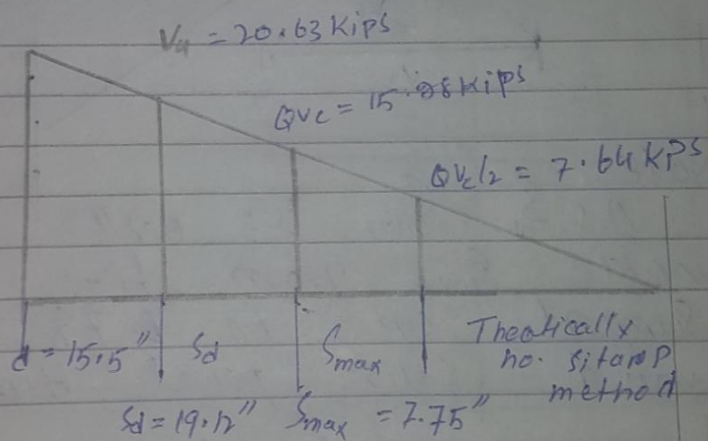 Vu = 20.63 Kips
QVc = 15.28 Kips
QVc/2 = 7.64 KPS
d = 15.5"
Sd
Smax
Theatically
no. sitarrp
method
Sd = 19.12" Smax = 7.75"